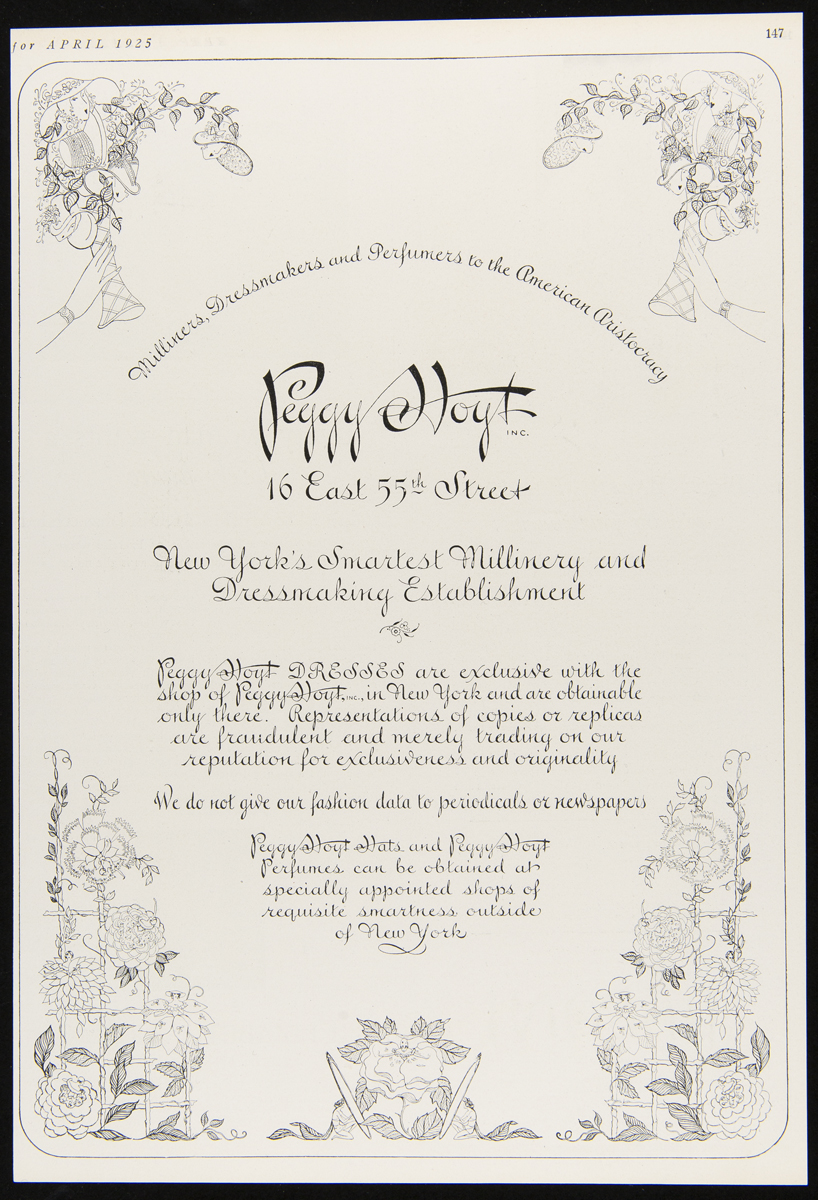 for APRIL 1925
147
Milliners, Dressmakers and Perfumers to the American Aristocracy
Peggy Hoyt
INC.
16 East 55th Street
New York's Smartest Millinery and
Dressmaking Establishment
Peggy Hoyt DRESSES are exclusive with the
shop of Peggy Hoyt, INC., in New York and are obtainable
only there. Representations of copies or replicas
are fraudulent and merely trading on our
reputation for exclusiveness and originality
We do not give our fashion data to periodicals or newspapers
Peggy Hoyt Hats and Peggy Hoyt
Perfumes can be obtained at
specially appointed shops of
requisite smartness outside
of New York